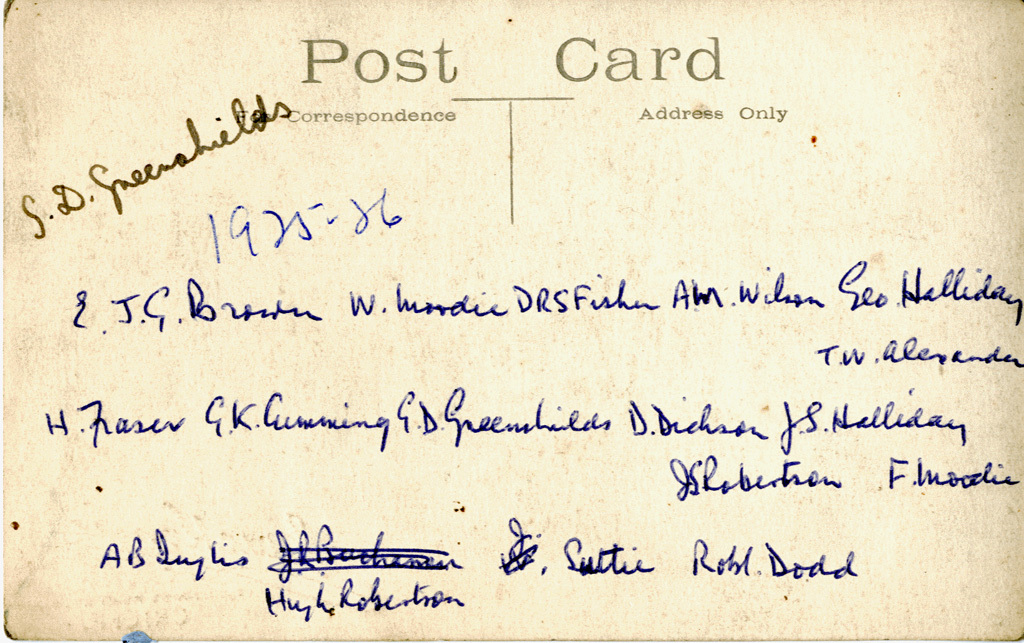 Post Card
For Correspondence Address Only
G. D. Greenshields
1925-26
E. J.G. Brown W. Moodie DRS Fisher AM. Wilson Geo. Halliday
T.W. Alexander
H. Fraser G.K. Cumming G.D. Greenshields D. Dickson J.S. Halliday
JS Robertson F. Moodie
AB Inglis J.R. Buchanan J. Suttie Robt. Dodd
Hugh Robertson